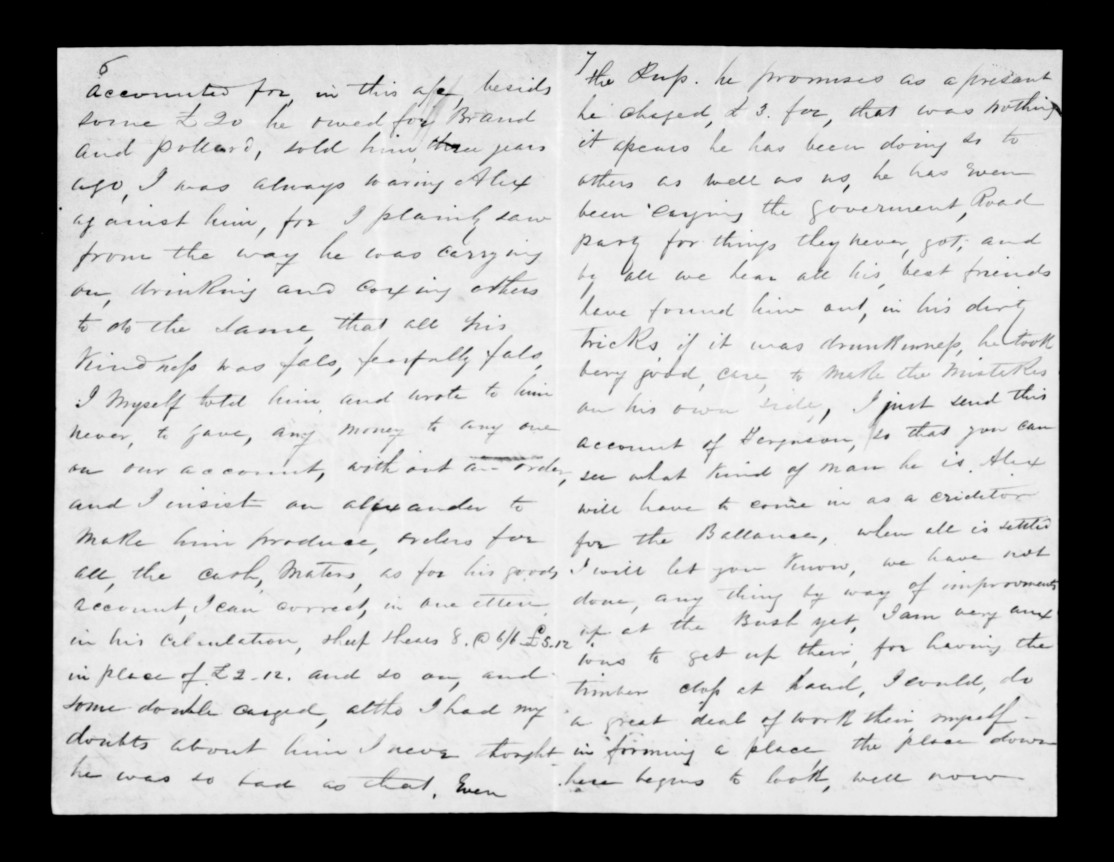 6
accounted for, in this a/c, besids
some £20 he owed for Brand
and Pollard, sold him, three years
ago, I was always waring Alex
against him, for I plainly saw
from the way he was carrying
on, drinking and coxing others
to do the same, that all his
Kindness was fals, fearfully fals,
I myself told him and wrote to him
never, to gave, any money to any one
on our account, without an order,
and I insist on alexander to
make him produce, orders for
all, the cash, maters, as for his goods
account, I can correct, in one ittem
in his calculation, sheep shears 8. @ 6/6 £5.12
in place of £2.12. and so on, and
some double carged, altho I had my
doubts about him I never thought
he was so bad as that. Even
7
the he promises as a present
he charged, £3. for, that was nothing
it apears he has been doing so to
others as well as us, he has Even
been carging the goverment, Road
party for things they never, got, and
by all we hear all his, best friends
have found him out, in his dirty
tricks if it was drunkinness, he took
very good, care, to make the mistakes
on his own side, I just send this
account of Ferguson, so that you can
see what kind of man he is. Alex
will have to come in as a criditor
for the Ballance, when all is settled
I will let you know, we have not
done, any thing by way of improvments
up at the Bush yet, I am very anx
ious to get up their, for having the
timber clos at hand, I could, do
a great deal of work their myself-
in forming a place the place down
here begins to look, well now